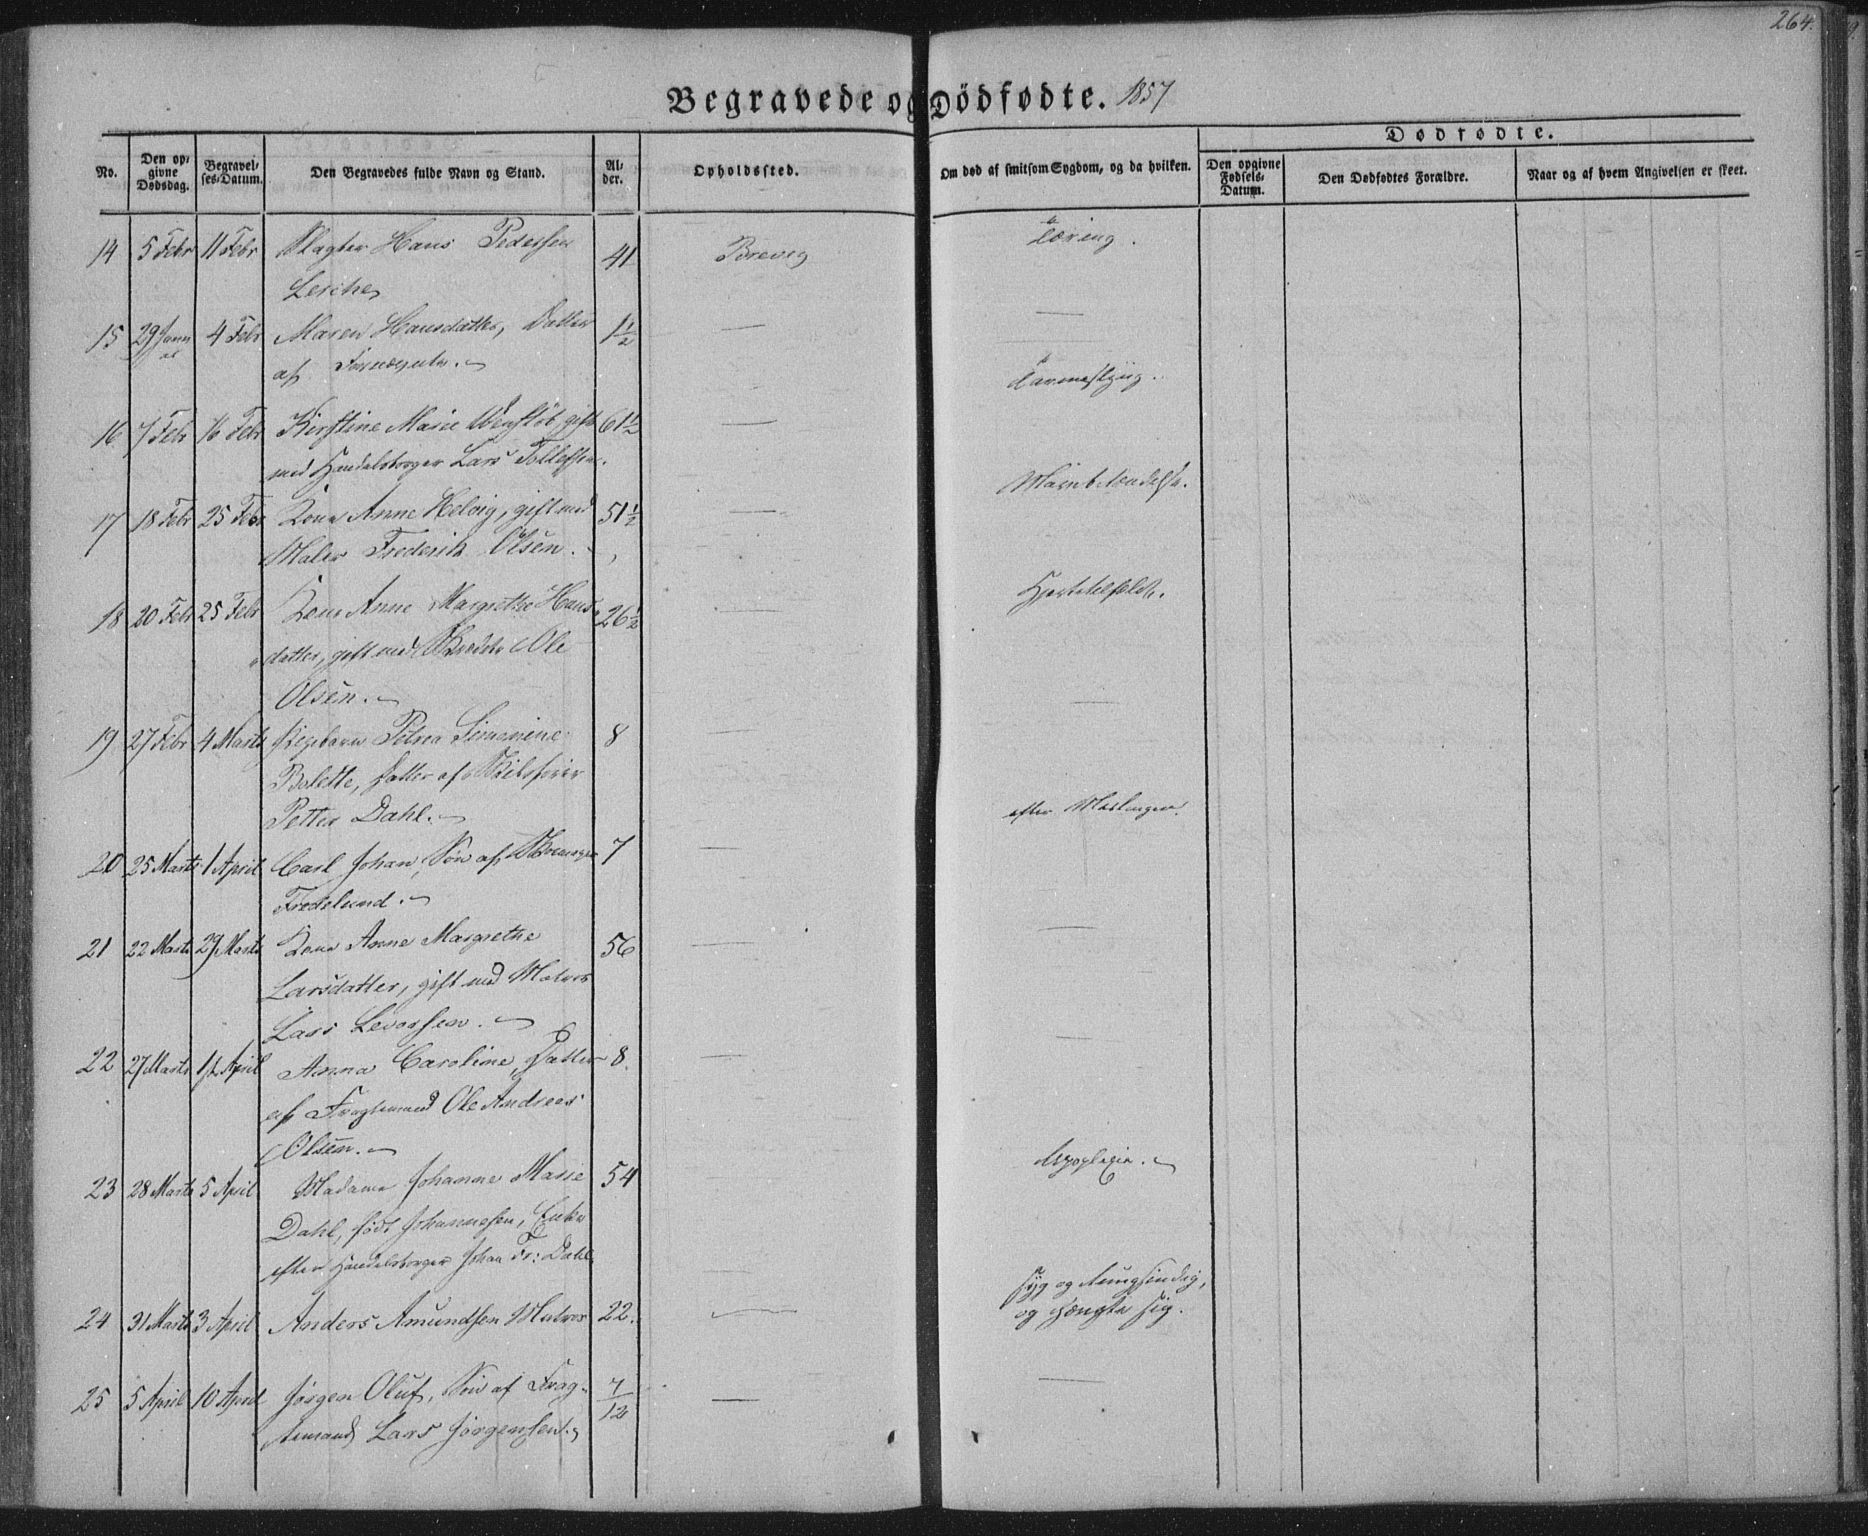 264.
Begravede og Dödfødte. 1857
Dødfødte.
No.
Den op-
givne
Dødsdag.
Begravel-
ses-Datum.
Den Begravedes fulde Navn og Stand.
Al-
der.
Opholdssted.
Om død af smitsom Sygdom, og da hvilken.
Den opgivne
Fødsels-
Datum.
Den Dødfødtes Forældre.
Naar og af hvem Angivelsen er skeet.
14 5 Febr 11 Febr Slagter Hans Pedersen 41 Brevig Tæring.
15 29 Janu 4 Febr Maren Hansdatter, Datter 1½ —
af
16 7 Febr 16 Febr Kirstine Marie gift 61½ —
med Handelsborger Lars Tollefsen.
17 18 Febr 25 Febr Kone Anne Helvig, gift med 51½ —
Maler Frederik Olsen.
18 20 Febr 25 Febr Kone Anne Margrethe Hans- 26½ —
datter, gift med Ole
Olsen.
19 27 Febr 4 Marts Pigebarn Petrea Simonine 8 —
Bolette, Datter af Skibsfører
Petter Dahl. efter Meslinger.
20 25 Marts 1 April Carl Johan, Søn af 7 —
Fredelund.
21 22 Marts 29 Marts Kone Anne Margrethe 56 —
Larsdatter, gift med Matros
Lars Levorsen.
22 27 Marts 1 April Anna Caroline, Datter 8. —
af Fragtemand Ole Andreas
Olsen. Apoplexie.
23 28 Marts 5 April Madame Johanne Marie 54
Dahl, født Johannesen, Enke
efter Handelsborger Johan Fr: Dahl —
Syg og tungsindig,
24 31 Marts 3 April Anders Amundsen Matros 22. — og hængte sig.
25 5 April 10 April Jørgen Oluf, Søn af Frag- 7/12 — —
temand Lars Jørgensen.